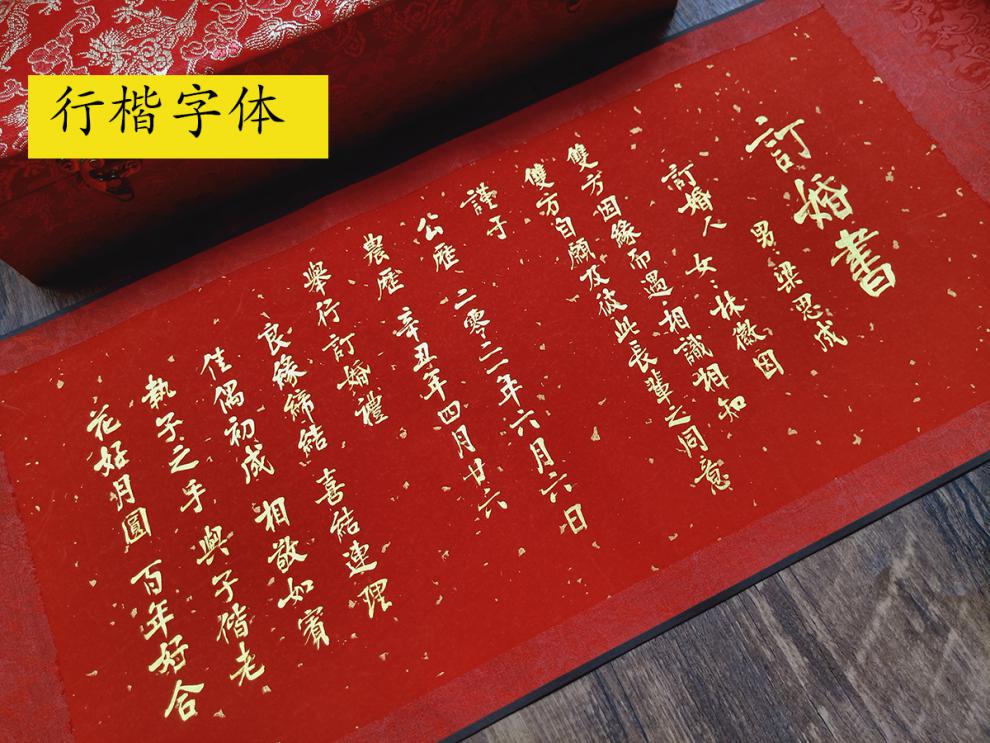 行楷字体
訂婚書
男：梁思成
訂婚人 女：林徽因
雙方因緣而遇 相識相知
雙方自願及彼此長輩之同意
謹于
公歷 二零二二年六月六日
農歷 辛丑年四月廿六
舉行訂婚禮
良緣締結 喜結連理
佳偶初成 相敬如賓
執子之手 與子偕老
花好月圓 百年好合